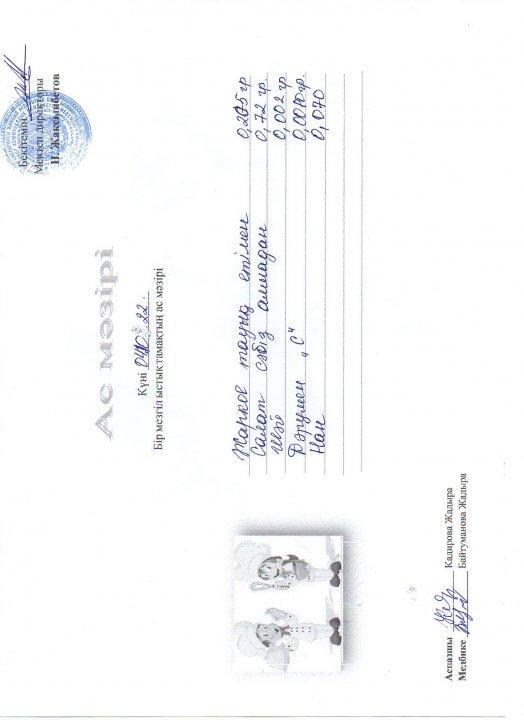 Бекітемін:
Мектеп директоры
Н. Жақсымбетов
Ас мәзірі
Күні 04.10.22.
Бір мезгіл ыстық тамақтың ас мәзірі
Жаркое тауық етімен 0,205 гр
Салат сәбіз алмадан 0,72 гр.
Шәй 0,002 гр
Дәрумен "С" 0,0010 гр.
Нан 0,070
Аспазшы Кадирова Жадыра
Медбике Байтуманова Жадыра